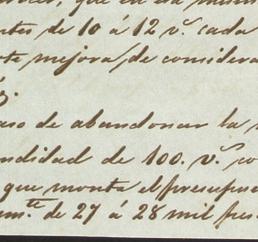 que en la
de 10 á 12 v.s cada
mejora de considera
aso de abandonar la
ndidad de 100. v.s co
que monta el presupues
de 27 á 28 mil pes